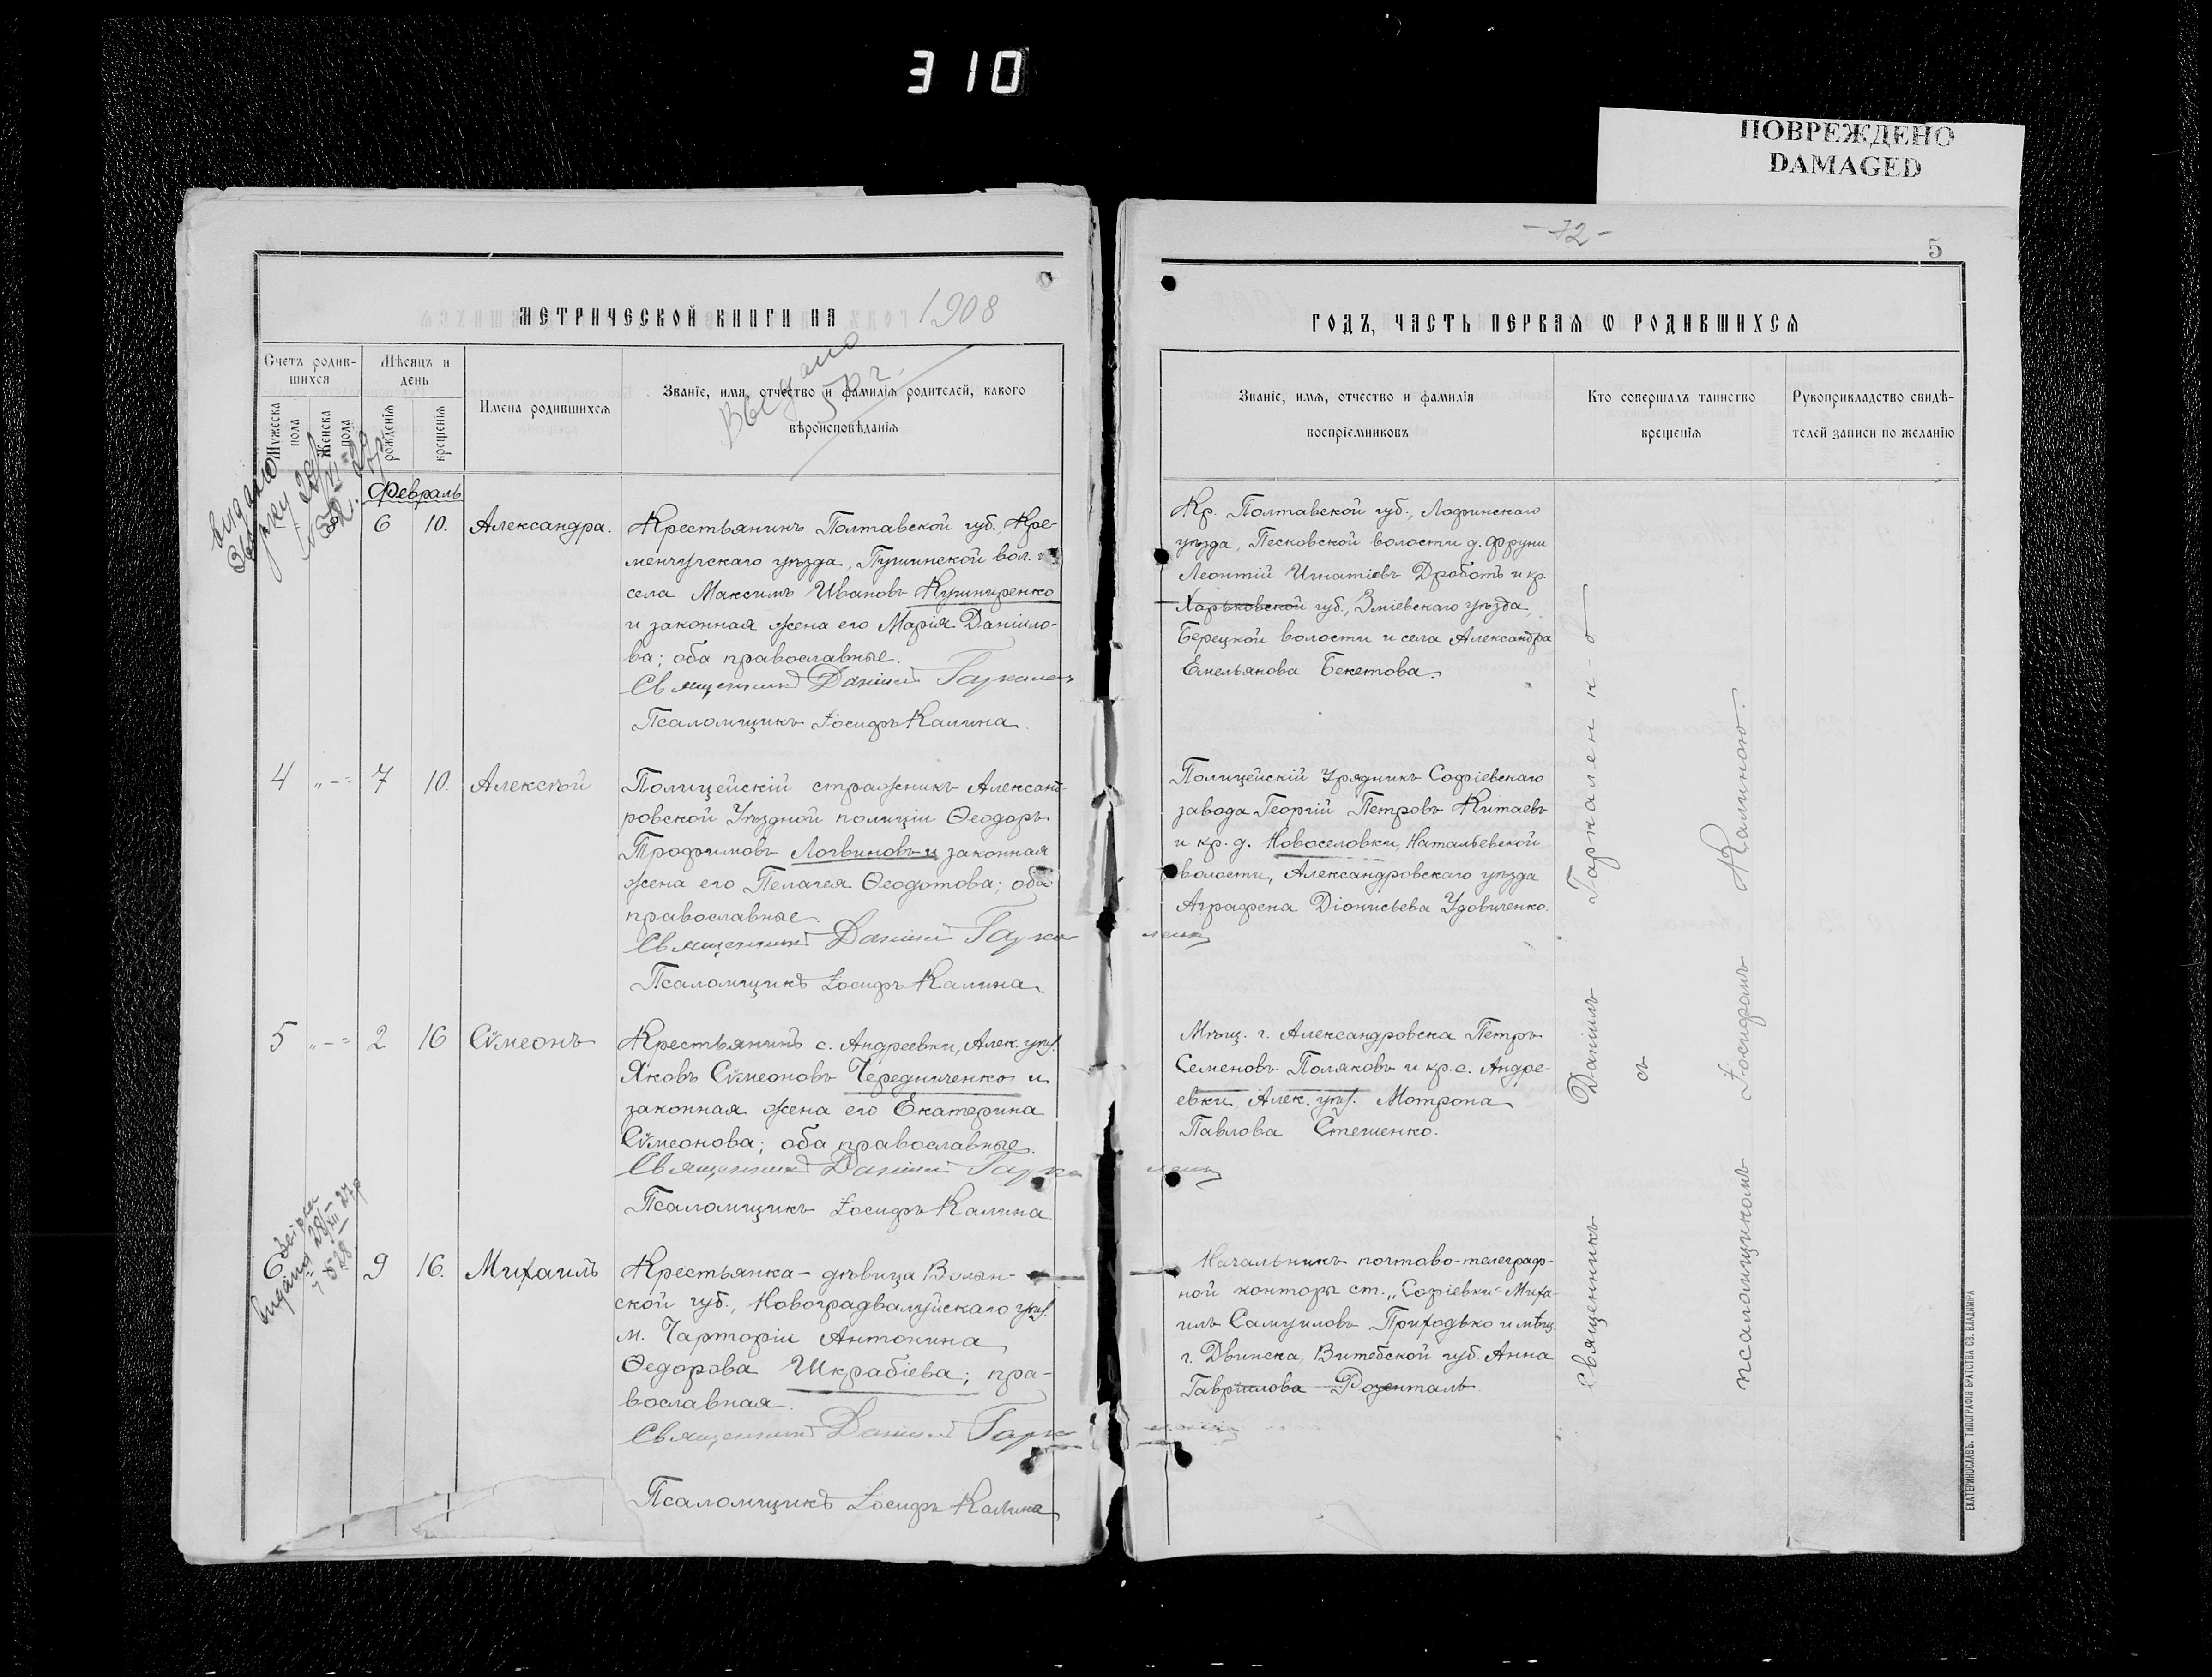 310
ПОВРЕЖДЕНО
DAMAGED
МЕТРИЧЕСКОЙ КНИГИ НА 1908
Счетъ родившихся
Мужеска пола
Женска пола
Мѣсяцъ и день
рожденія
крещенія
Имена родившихся
Званіе, имя, отчество и фамилія родителей, какого
вѣроисповѣданія
Выдано
Февраль
6 10. Александра.
Крестьянинъ Полтавской губ., Кре-
менчугскаго уѣзда, вол. и
села Максимъ Ивановъ Кушниренко
и законная жена его Марія Даніило-
ва; оба православные.
Священникъ Даніилъ Гаркаленко
Псаломщикъ Іосифъ Калина.
4 „-" 7 10. Алексѣй
Полицейскій стражникъ Александ-
ровской Уѣздной полиціи Ѳеодоръ
Трофимовъ Логвиновъ и законная
жена его Пелагея Ѳеодотова; оба
православные.
Священникъ Даніилъ Гаркаленко
Псаломщикъ Іосифъ Калина.
5 „-" 2 16 Сѵмеонъ
Крестьянинъ с. Андреевки, Алек. уѣз.
Яковъ Сѵмеоновъ Чередниченко и
законная жена его Екатерина
Сѵмеонова; оба православные.
Священникъ Даніилъ Гаркаленко
Псаломщикъ Іосифъ Калина.
6 9 16. Михаилъ
Крестьянка-дѣвица Волын-
ской губ., Новоградвалуйскаго уѣз.
м. Чарторіи Антонина
Ѳедорова Шкрабіева; пра-
вославная.
Священникъ Даніилъ Гаркаленко
Псаломщикъ Іосифъ Калина
-72-
5
ГОДЪ, ЧАСТЬ ПЕРВАЯ Ѡ РОДИВШИХСЯ
Званіе, имя, отчество и фамилія
воспріемниковъ
Кто совершалъ таинство
крещенія
Рукоприкладство свидѣ-
телей записи по желанію
Кр. Полтавской губ.,
уѣзда, Песковской волости д.
Леонтій Игнатіевъ Дроботъ и кр.
Харьковской губ., Зміевскаго уѣзда,
Берецкой волости и села Александра
Емельянова Бекетова.
Полицейскій Урядникъ Софіевскаго
завода Георгій Петровъ Китаевъ
и кр. д. Новоселовки, Натальевской
волости, Александровскаго уѣзда
Аграфена Діонисьева Удовиченко.
Мѣщ. г. Александровска Петръ
Семеновъ Поляковъ и кр. с. Андре-
евки, Алек. уѣз. Мотрона
Павлова Стешенко.
Начальникъ почтово-телеграф-
ной конторы ст. „Софіевки" Миха-
илъ Самуиловъ Приходько и мѣщ.
г. Двинска, Витебской губ. Анна
Гаврилова Розенталь.
Священникъ Даніилъ Гаркаленко
съ
псаломщикомъ Іосифомъ Калиною.
ЕКАТЕРИНОСЛАВЪ. ТИПОГРАФІЯ БРАТСТВА СВ. ВЛАДИМІРА